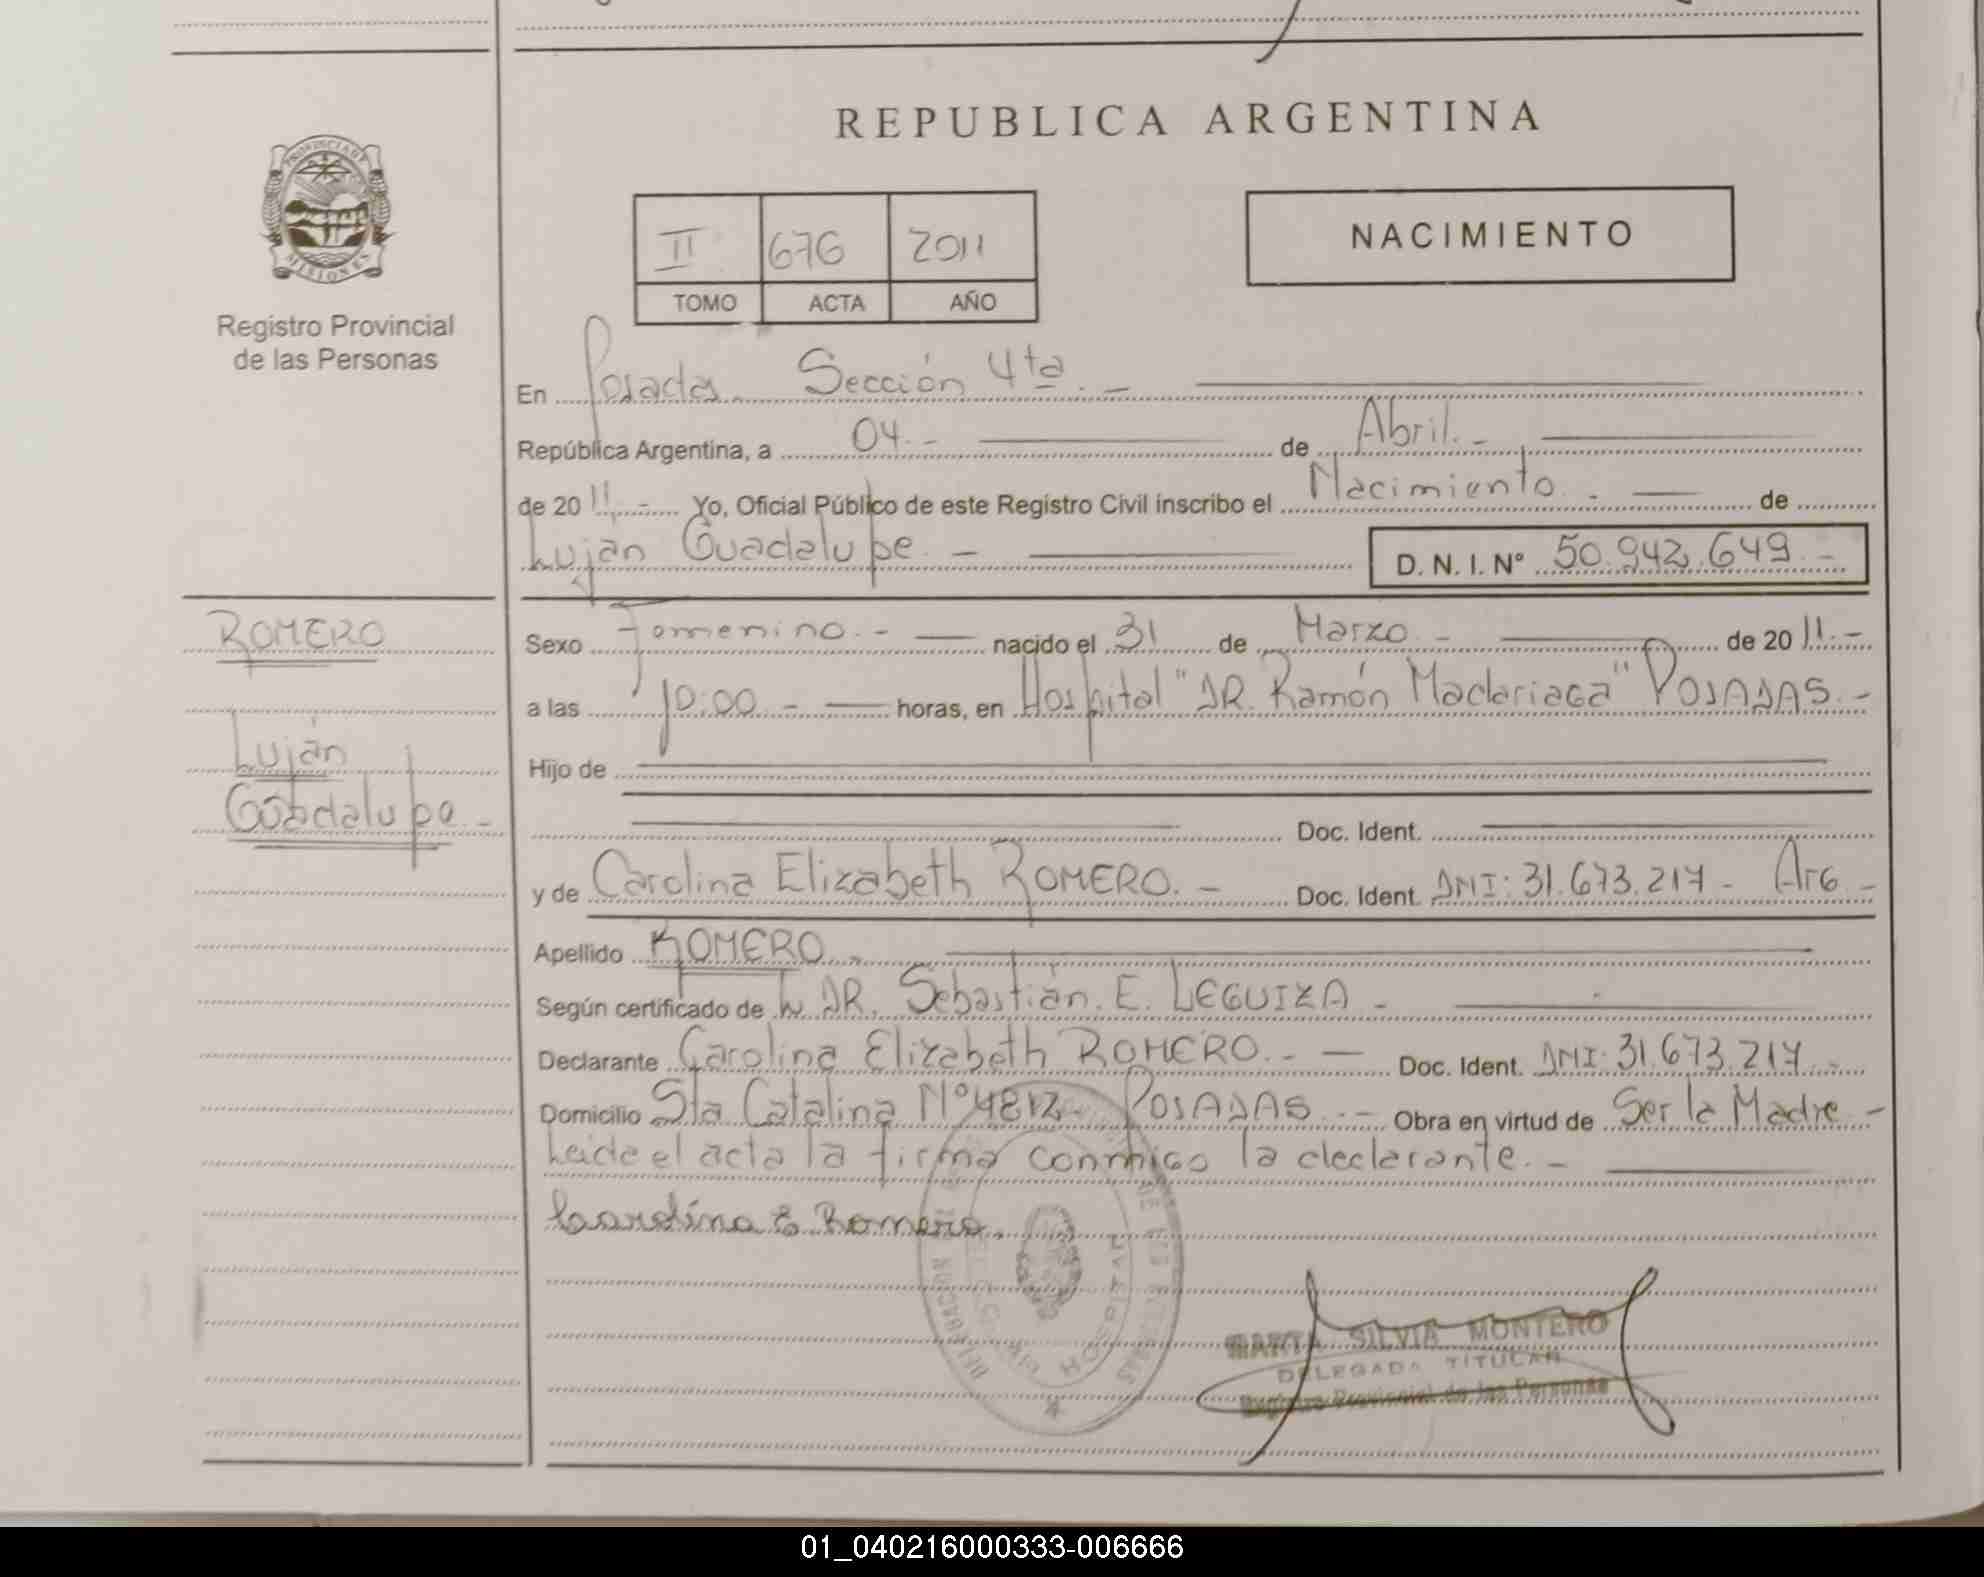 REPUBLICA ARGENTINA
PROVINCIA DE
MISIONES
Registro Provincial
de las Personas
II 676 2011
TOMO ACTA AÑO
NACIMIENTO
En Posadas Sección 4ta. -
República Argentina, a 04. - de Abril. -
de 2011. - Yo, Oficial Público de este Registro Civil inscribo el Nacimiento. - de
Luján Guadalupe. - D. N. I. N° 50.942.649. -
ROMERO
Luján
Guadalupe. -
Sexo Femenino. - nacido el 31 de Marzo. - de 2011. -
a las 10:00. - horas, en Hospital "DR. Ramón Madariaga" POSADAS. -
Hijo de
Doc. Ident.
y de Carolina Elizabeth ROMERO. - Doc. Ident. DNI: 31.673.217 - Arg. -
Apellido ROMERO. -
Según certificado de DR. Sebastián. E. LEGUIZA -
Declarante Carolina Elizabeth ROMERO. - Doc. Ident. DNI: 31.673.217. -
Domicilio Sta Catalina N° 4812 - POSADAS. - Obra en virtud de Ser la Madre. -
Leida el acta la firma conmigo la declarante. -
Carolina E Romero.
MARTA SILVIA MONTERO
DELEGADA TITULAR
Registro Provincial de las Personas
01_040216000333-006666